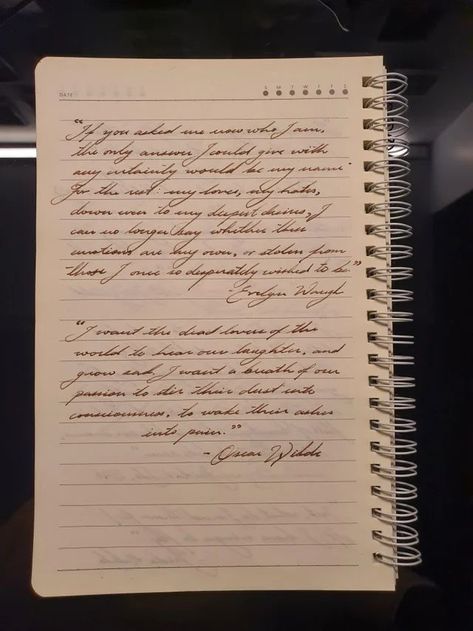 DATE S M T W T F S
"If you asked me now who I am,
the only answer I could give with
any certainty would be my name.
For the rest: my loves, my hates,
down even to my deepest desires, I
can no longer say whether these
emotions are my own, or stolen from
those I once so desperately wished to be."
- Evelyn Waugh
"I want the dead lovers of the
world to hear our laughter, and
grow sad, I want a breath of our
passion to stir their dust into
consciousness, to wake their ashes
into pain."
- Oscar Wilde